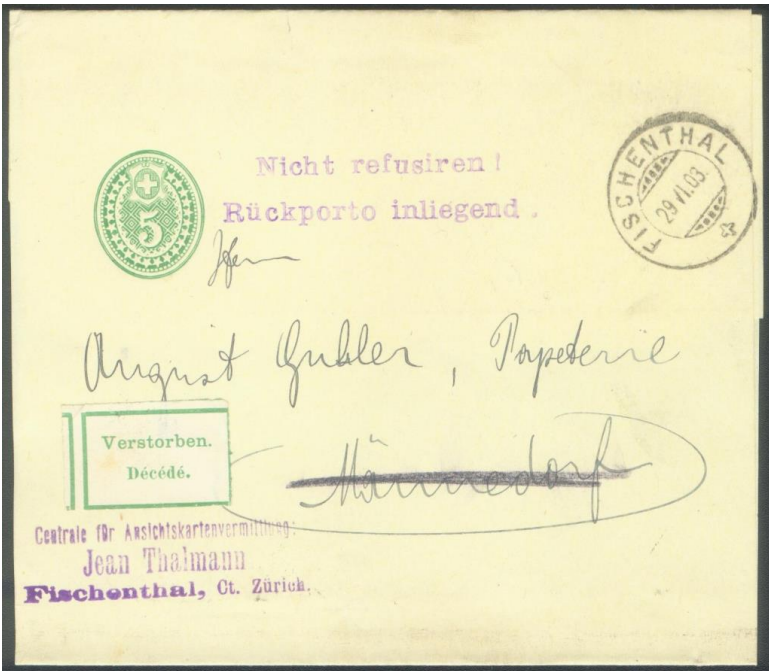 5
Nicht refusiren!
Rückporto inliegend.
FISCHENTHAL
29 VI.03.
August Gubler, Papeterie
Männedorf
Verstorben.
Décédé.
Centrale für Ansichtskartenvermittlung:
Jean Thalmann
Fischenthal, Ct. Zürich.